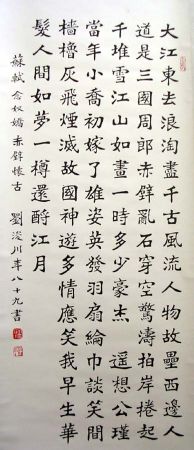 大江東去浪淘盡千古風流人物故壘西邊人
道是三國周郎赤壁亂石穿空驚濤拍岸捲起
千堆雪江山如畫一時多少豪杰遙想公瑾
當年小喬初嫁了雄姿英發羽扇綸巾談笑間
檣櫓灰飛煙滅故國神遊多情應笑我早生華
髮人間如夢一樽還酹江月
蘇軾念奴嬌赤壁懷古 劉浚川年八十九書